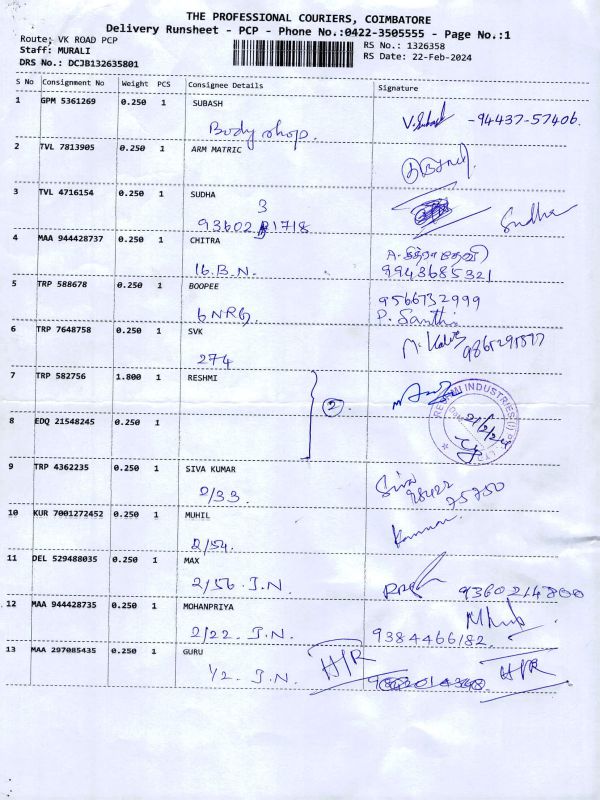 THE PROFESSIONAL COURIERS, COIMBATORE
Delivery Runsheet - PCP - Phone No.:0422-3505555 - Page No.:1
Route; VK ROAD PCP
Staff: MURALI
DRS No.: DCJB132635801
RS No.: 1326358
RS Date: 22-Feb-2024
S No Consignment No Weight PCS Consignee Details Signature
1 GPM 5361269 0.250 1 SUBASH
Body shop. V.Subash -94437-57406.
2 TVL 7813905 0.250 1 ARM MATRIC
3 TVL 4716154 0.250 1 SUDHA
3
93602 1718 Sudha
4 MAA 944428737 0.250 1 CHITRA
A.சித்ராதேவி
16.B.N. 9943685321
5 TRP 588678 0.250 1 BOOPEE
9566732999
6 NRG. P. Santhi
6 TRP 7648758 0.250 1 SVK
274
7 TRP 582756 1.800 1 RESHMI
2
8 EDQ 21548245 0.250 1
9 TRP 4362235 0.250 1 SIVA KUMAR
2/33 Siva
98422
75750
10 KUR 7001272452 0.250 1 MUHIL
2/54. Kannan
11 DEL 529488035 0.250 1 MAX
2/56 J.N. 9360214800
12 MAA 944428735 0.250 1 MOHANPRIYA
2/22. J.N. 9384466182.
13 MAA 297085435 0.250 1 GURU
1/2. J.N. H/R H/R